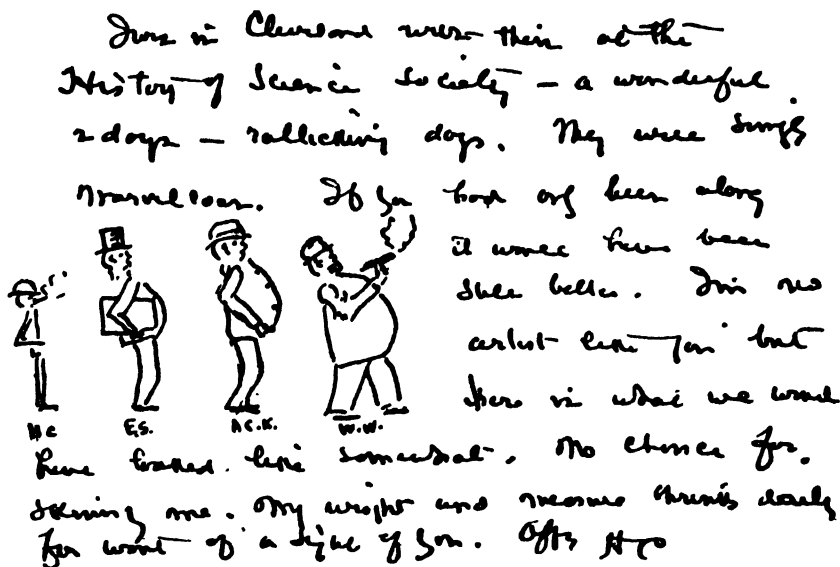 I was in Cleveland with them at the
History of Science Society – a wonderful
2 days – rollicking days. They were simply
marvellous. If you had only been along
it would have been
still better. I'm no
artist like you but
here is what we would
H C E.S. A C.K. W.W.
have looked like somewhat. No chance for
skinny me. My weight and measure shrinks daily
for want of a sight of you. Offy